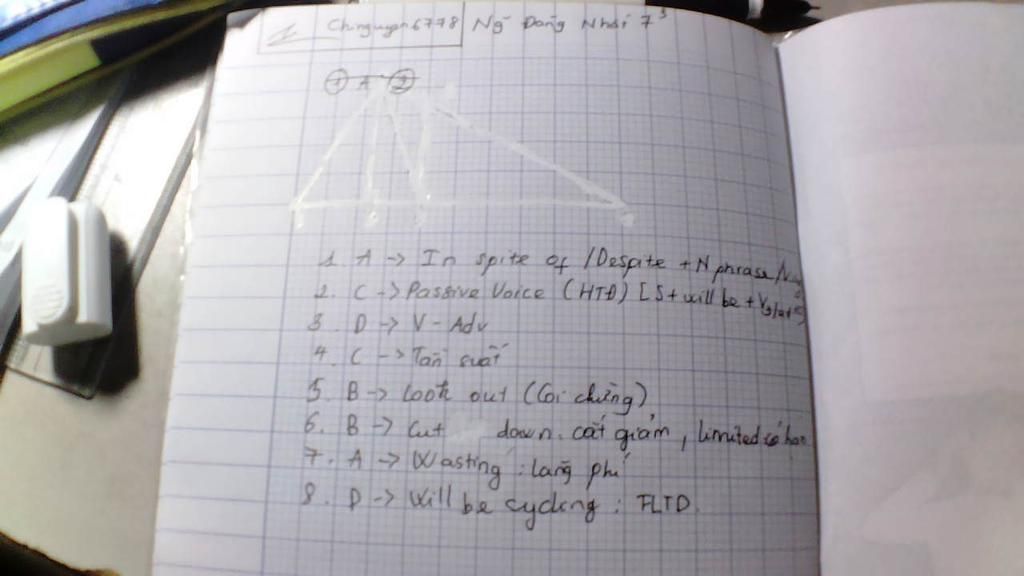 1 Chinguyen6778 Ngô Đông Nhái 7³
① A ② 
1. A -> In spite of / Despite + N phrase / V
2. C -> Passive Voice (HTĐ) [S + will be + V3/ed]
3. D -> V - Adv
4. C -> Tần suất
5. B -> Look out (Coi chừng)
6. B -> Cut down : cắt giảm, limited
7. A -> Wasting : lãng phí
8. D -> Will be cycling : TLTD.